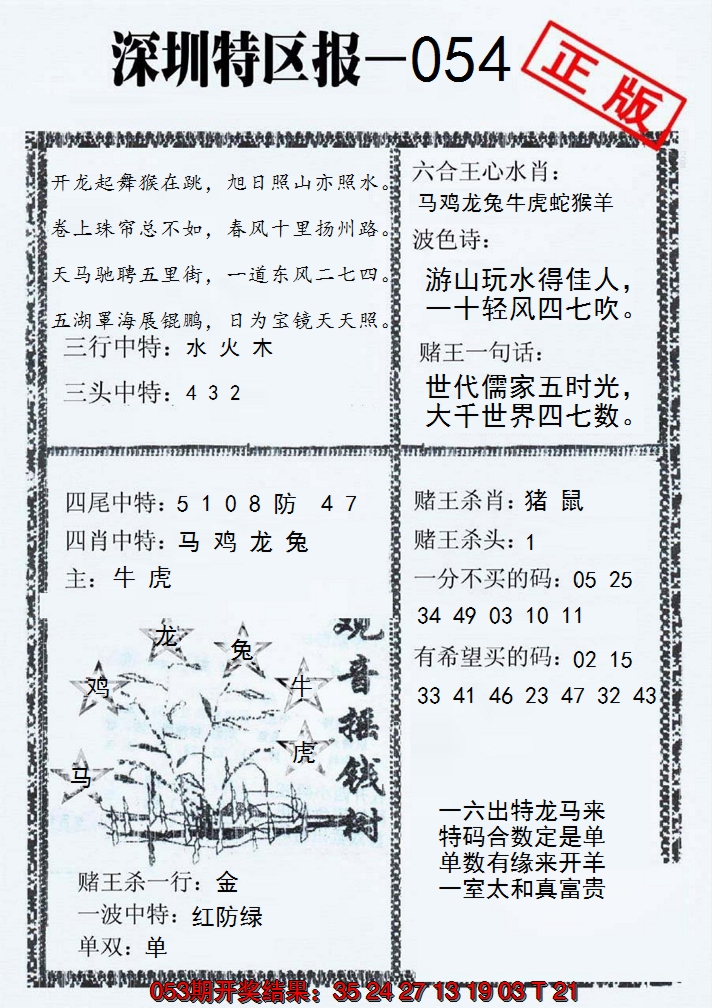 深圳特区报—054
正版
开龙起舞猴在跳，旭日照山亦照水。
卷上珠帘总不如，春风十里扬州路。
天马驰聘五里街，一道东风二七四。
五湖罩海展锟鹏，日为宝镜天天照。
三行中特：水 火 木
三头中特：4 3 2
六合王心水肖：
马鸡龙兔牛虎蛇猴羊
波色诗：
游山玩水得佳人，
一十轻风四七吹。
赌王一句话：
世代儒家五时光，
大千世界四七数。
四尾中特：5 1 0 8 防 4 7
四肖中特：马 鸡 龙 兔
主：牛 虎
观音摇钱树
龙
兔
鸡
牛
虎
马
赌王杀一行：金
一波中特：红防绿
单双：单
赌王杀肖：猪 鼠
赌王杀头：1
一分不买的码：05 25
34 49 03 10 11
有希望买的码：02 15
33 41 46 23 47 32 43
一六出特龙马来
特码合数定是单
单数有缘来开羊
一室太和真富贵
053期开奖结果：35 24 27 13 19 03 T 21